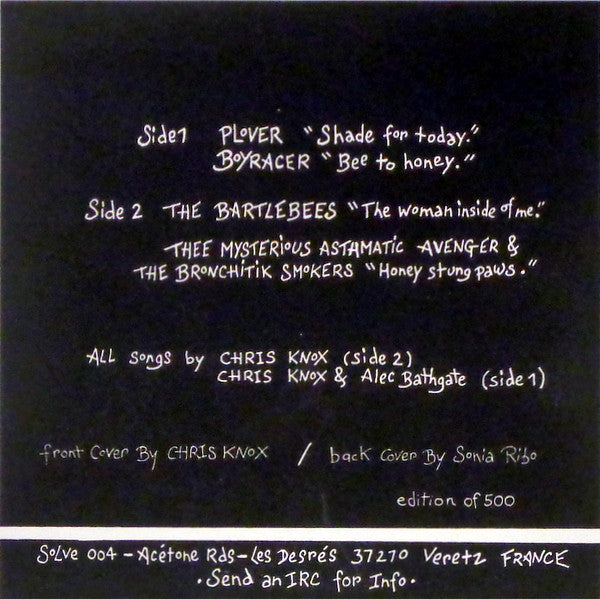 Side 1 PLOVER "Shade for today."
BOYRACER "Bee to honey."
Side 2 THE BARTLEBEES "The woman inside of me."
THEE MYSTERIOUS ASTAMATIC AVENGER &
THE BRONCHITIK SMOKERS "Honey stung paws."
ALL songs by CHRIS KNOX (side 2)
CHRIS KNOX & Alec Bathgate (side 1)
front Cover By CHRIS KNOX / back Cover By Sonia Ribo
edition of 500
SOLVE 004 - Acétone Rds - Les Desrés 37270 Veretz FRANCE
• Send an IRC for Info •